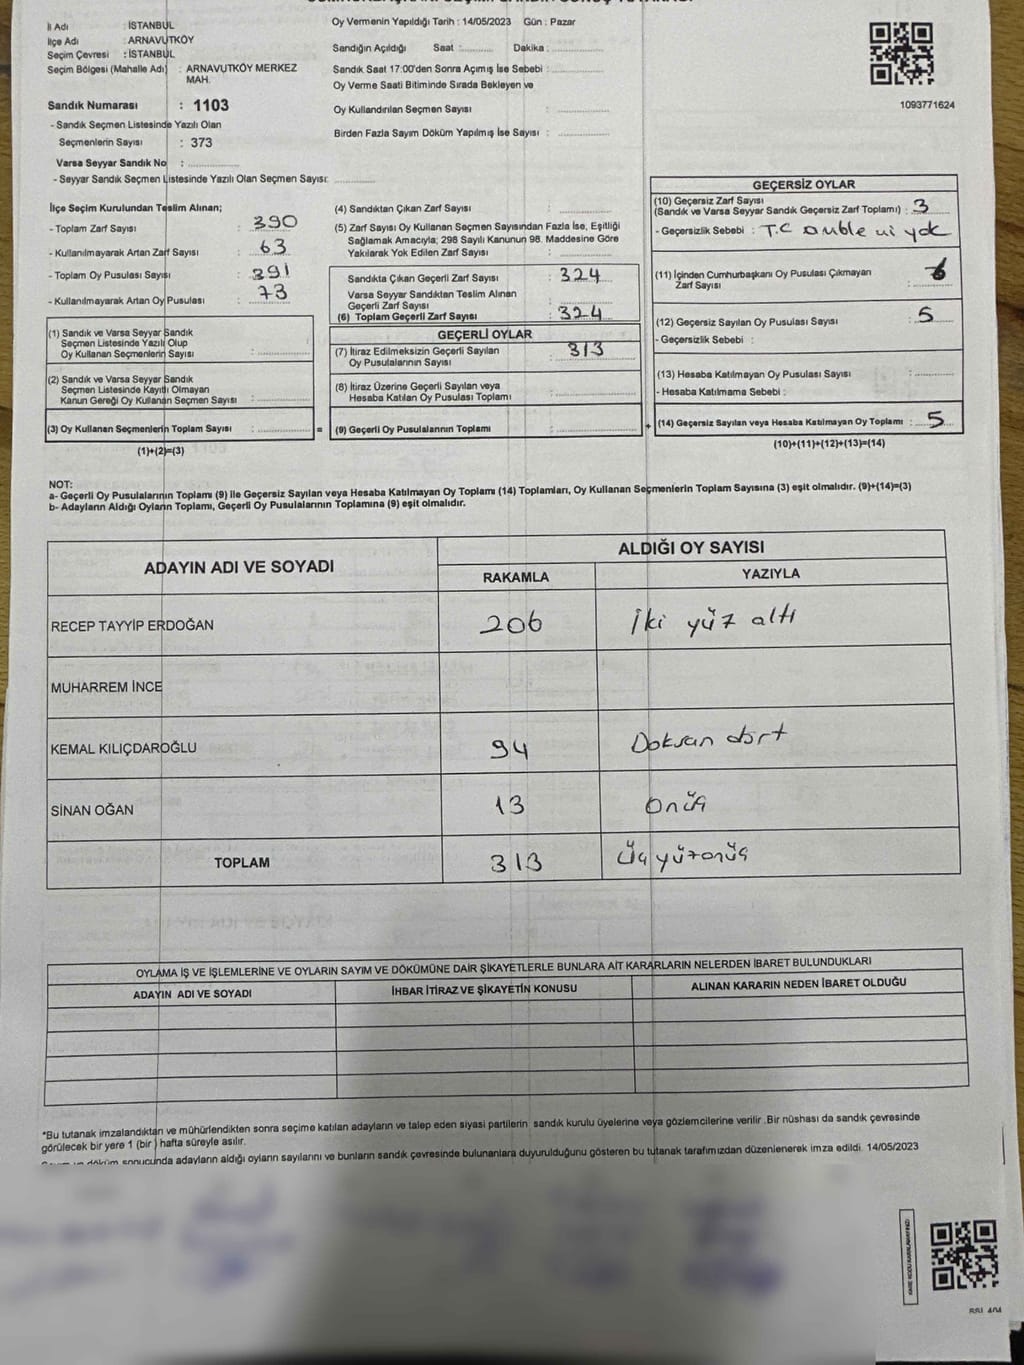 İl Adı : İSTANBUL
İlçe Adı : ARNAVUTKÖY
Seçim Çevresi : İSTANBUL
Seçim Bölgesi (Mahalle Adı) : ARNAVUTKÖY MERKEZ MAH.
Sandık Numarası : 1103
- Sandık Seçmen Listesinde Yazılı Olan
Seçmenlerin Sayısı : 373
Varsa Seyyar Sandık No :
- Seyyar Sandık Seçmen Listesinde Yazılı Olan Seçmen Sayısı:
Oy Vermenin Yapıldığı Tarih : 14/05/2023 Gün : Pazar
Sandığın Açıldığı Saat : Dakika :
Sandık Saat 17:00'den Sonra Açımış İse Sebebi :
Oy Verme Saati Bitiminde Sırada Bekleyen ve
Oy Kullandırılan Seçmen Sayısı :
Birden Fazla Sayım Döküm Yapılmış İse Sayısı :
1093771624
İlçe Seçim Kurulundan Teslim Alınan;
- Toplam Zarf Sayısı : 390
- Kullanılmayarak Artan Zarf Sayısı : 63
- Toplam Oy Pusulası Sayısı : 391
- Kullanılmayarak Artan Oy Pusulası : 73
(1) Sandık ve Varsa Seyyar Sandık
Seçmen Listesinde Yazılı Olup
Oy Kullanan Seçmenlerin Sayısı :
(2) Sandık ve Varsa Seyyar Sandık
Seçmen Listesinde Kayıtlı Olmayan
Kanun Gereği Oy Kullanan Seçmen Sayısı :
(3) Oy Kullanan Seçmenlerin Toplam Sayısı : =
(1)+(2)=(3)
(4) Sandıktan Çıkan Zarf Sayısı :
(5) Zarf Sayısı Oy Kullanan Seçmen Sayısından Fazla İse, Eşitliği
Sağlamak Amacıyla; 298 Sayılı Kanunun 98. Maddesine Göre
Yakılarak Yok Edilen Zarf Sayısı :
Sandıkta Çıkan Geçerli Zarf Sayısı : 324
Varsa Seyyar Sandıktan Teslim Alınan
Geçerli Zarf Sayısı :
(6) Toplam Geçerli Zarf Sayısı : 324
GEÇERLİ OYLAR
(7) İtiraz Edilmeksizin Geçerli Sayılan : 313
Oy Pusulalarının Sayısı
(8) İtiraz Üzerine Geçerli Sayılan veya
Hesaba Katılan Oy Pusulası Toplamı :
(9) Geçerli Oy Pusulalarının Toplamı : +
GEÇERSİZ OYLAR
(10) Geçersiz Zarf Sayısı
(Sandık ve Varsa Seyyar Sandık Geçersiz Zarf Toplamı) : 3
- Geçersizlik Sebebi : T.C
(11) İçinden Cumhurbaşkanı Oy Pusulası Çıkmayan
Zarf Sayısı :
(12) Geçersiz Sayılan Oy Pusulası Sayısı : 5
- Geçersizlik Sebebi :
(13) Hesaba Katılmayan Oy Pusulası Sayısı :
- Hesaba Katılmama Sebebi :
(14) Geçersiz Sayılan veya Hesaba Katılmayan Oy Toplamı : 5
(10)+(11)+(12)+(13)=(14)
NOT:
a- Geçerli Oy Pusulalarının Toplamı (9) ile Geçersiz Sayılan veya Hesaba Katılmayan Oy Toplamı (14) Toplamları, Oy Kullanan Seçmenlerin Toplam Sayısına (3) eşit olmalıdır. (9)+(14)=(3)
b- Adayların Aldığı Oyların Toplamı, Geçerli Oy Pusulalarının Toplamına (9) eşit olmalıdır.
ADAYIN ADI VE SOYADI ALDIĞI OY SAYISI
RAKAMLA YAZIYLA
RECEP TAYYİP ERDOĞAN 206 İki yüz altı
MUHARREM İNCE
KEMAL KILIÇDAROĞLU 94 Doksan dört
SİNAN OĞAN 13 onüç
TOPLAM 313 Üç yüz onüç
OYLAMA İŞ VE İŞLEMLERİNE VE OYLARIN SAYIM VE DÖKÜMÜNE DAİR ŞİKAYETLERLE BUNLARA AİT KARARLARIN NELERDEN İBARET BULUNDUKLARI
ADAYIN ADI VE SOYADI İHBAR İTİRAZ VE ŞİKAYETİN KONUSU ALINAN KARARIN NEDEN İBARET OLDUĞU
*Bu tutanak imzalandıktan ve mühürlendikten sonra seçime katılan adayların ve talep eden siyasi partilerin sandık kurulu üyelerine veya gözlemcilerine verilir .Bir nüshası da sandık çevresinde
görülecek bir yere 1 (bir ) hafta süreyle asılır.
döküm sonucunda adayların aldığı oyların sayılarını ve bunların sandık çevresinde bulunanlara duyurulduğunu gösteren bu tutanak tarafımızdan düzenlenerek imza edildi. 14/05/2023